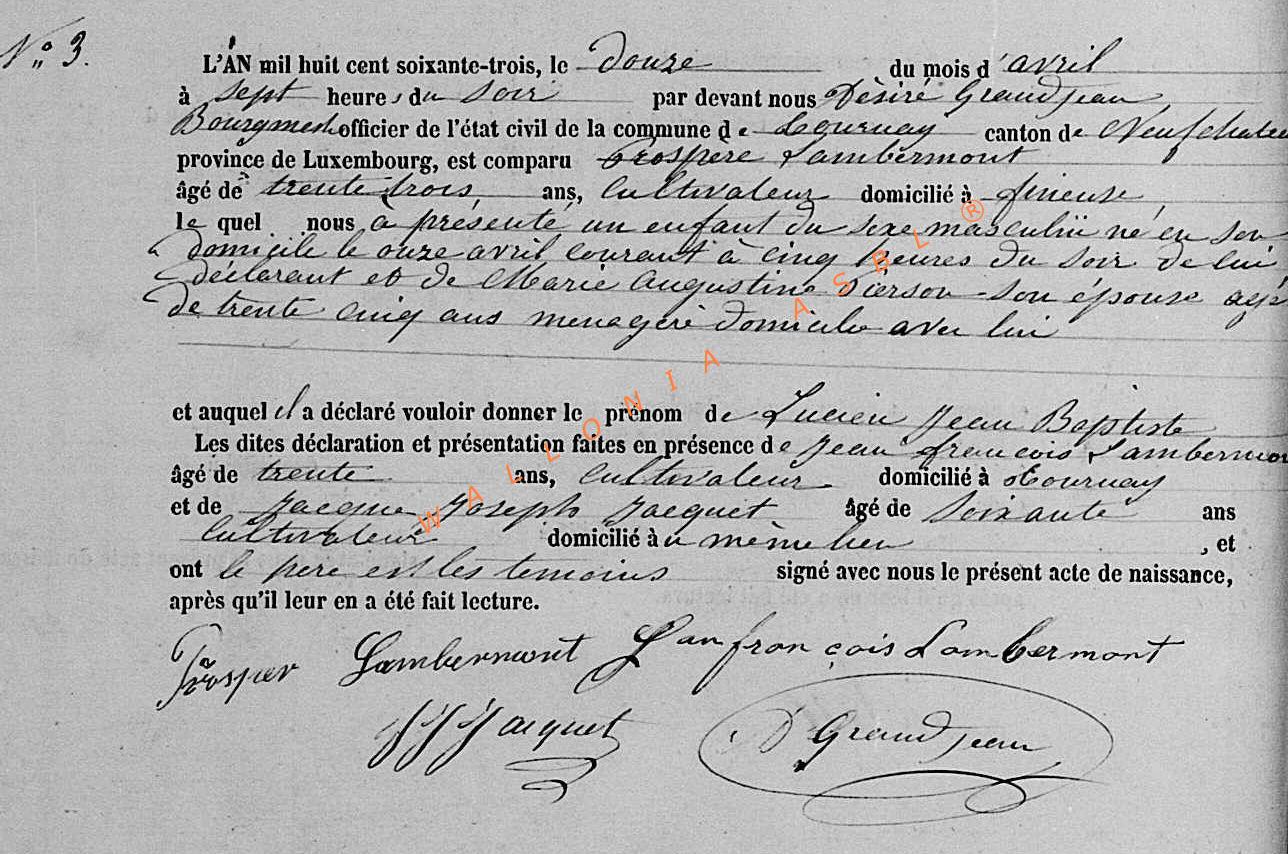 N° 3.
L'AN mil huit cent soixante-trois, le douze du mois d'avril
à sept heures du soir par devant nous Désiré Grandjean,
Bourgmestre officier de l'état civil de la commune de Tournay canton de Neufchateau
province de Luxembourg, est comparu Prospère Lambermont
âgé de trente trois ans, Cultivateur domicilié à fineuse,
le quel nous à présenté un enfant du sexe masculin né en son
domicile le onze avril courant à cinq heures du soir de lui
déclarant et de Marie Augustine Pierson son épouse agé
de trente cinq ans menagère domicilie avec lui
et auquel il a déclaré vouloir donner le prénom de Lucien Jean Baptiste
Les dites déclaration et présentation faites en présence de Jean françois Lambermon
âgé de trente ans, Cultivateur domicilié à Tournay
et de Jacque Joseph Jacquet âgé de Soixante ans
Cultivateur domicilié à u même lieu, et
ont le pere est les temoins signé avec nous le présent acte de naissance,
après qu'il leur en a été fait lecture.
Prosper Lambermont Jean françois Lambermont
J J Jacquet D Grandjean
WALLONIA ASBL ®